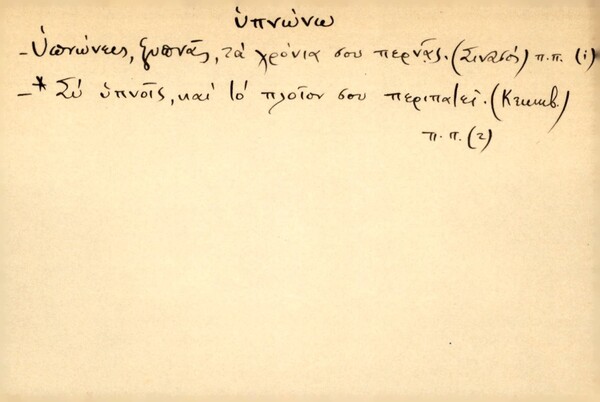 ὑπνώνω
- Ὑπνώνεις, ξυπνᾷς, τὰ χρόνια σου περνᾷς. (Σινασός) π.π. (1)
- * Σὺ ὑπνοῖς, καὶ τὸ πλοῖον σου περιπατεῖ.
π.π. (2)